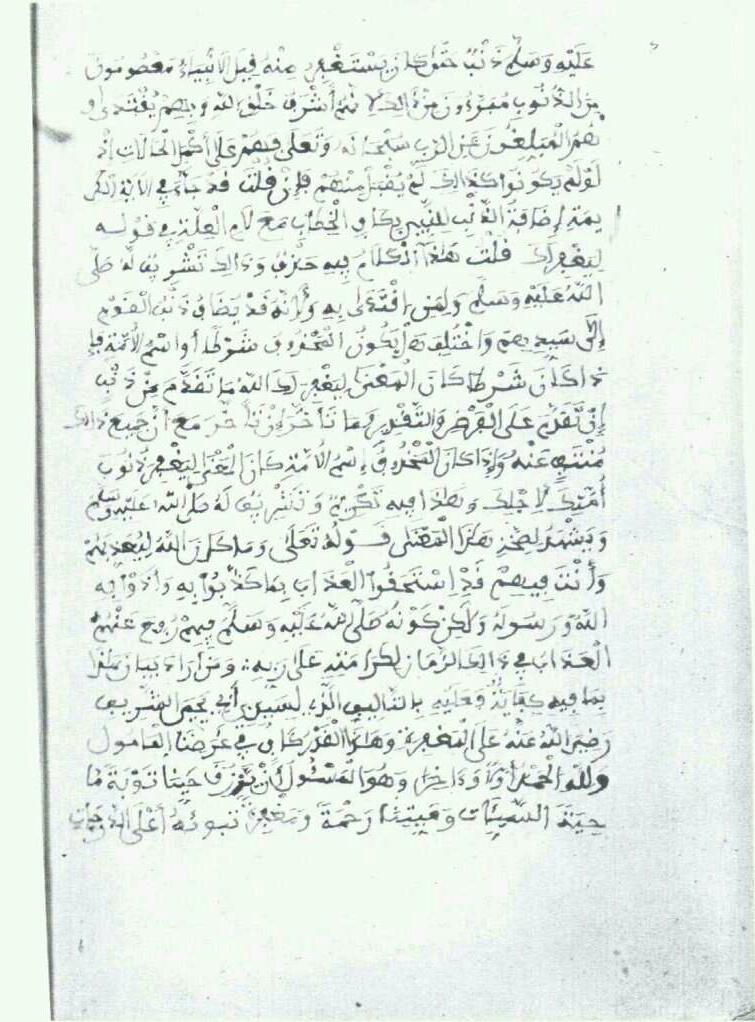 عَلَيْهِ وَسَلَّمَ ذَنْبٌ حَتَّى كَانَ يَسْتَغْفِرُ مِنْهُ قِيلَ الأَنْبِيَاءُ مَعْصُومُونَ
مِنَ الذُّنُوبِ مُبَرَّءُونَ مِنْ ذَالِكَ لِأَنَّهُمْ أَشْرَفُ خَلْقِ اللهِ وَبِهِمْ يُقْتَدَى وَ
هُمُ الْمُبَلِّغُونَ عَنِ الرَّبِّ سُبْحَانَهُ وَتَعَلَى فَهُمْ عَلَى أَكْمَلِ الْحَالَاتِ إِذْ
لَوْ لَمْ يَكُونُوا كَذَالِكَ لَمْ يُقْبَلْ مِنْهُمْ فَإِنْ قُلْتَ قَدْ جَاءَ فِي الآيَةِ الْكَرِ
يمَةِ إِضَافَةُ الذَّنْبِ لِلنَّبِيِّ بِكَافِ الْخِطَابِ مَعَ لَامِ الْعِلَّةِ فِي قَوْلِهِ
لِيَغْفِرَ لَكَ قُلْتُ هَذَا الْكَلَامُ فِيهِ حَذْفٌ وَذَالِكَ تَشْرِيفٌ لَهُ صَلَّى
اللَّهُ عَلَيْهِ وَسَلَّمَ وَلِمَنِ اقْتَدَى بِهِ وَلِأَنَّهُ قَدْ يُضَافُ ذَنْبُ الْقَوْمِ
إِلَى سَيِّدِهِمْ وَاخْتُلِفَ هَلْ يَكُونُ الْمَحْذُوفُ شَرْطًا أَوِ اسْمُ الأُمَّةِ فَإِ
ذَا كَانَ شَرْطًا كَانَ الْمَعْنَى لِيَغْفِرَ لَكَ اللهُ مَا تَقَدَّمَ مِنْ ذَنْبٍ
إِنْ تَقَدَّمَ عَلَى الْفَرْضِ وَالتَّقْدِيرِ وَمَا تَأَخَّرَ إِنْ تَأَخَّرَ مَعَ أَنَّ جَمِيعَ ذَالِكَ
مُنْتَفٍ عَنْهُ وَإِذَا كَانَ الْمَحْذُوفُ إِسْمُ الأُمَّةِ كَانَ الْمَعْنَى لِيَغْفِرَ ذُنُوبَ
أُمَّتِكَ لِأَجْلِكَ وَهَذَا فِيهِ تَكْرِيمٌ وَتَشْرِيفٌ لَهُ صَلَّى اللهُ عَلَيْهِ وَسَلَّمَ
وَيَشْهَدُ لِصِحَّةِ هَذَا الْمَعْنَى قَوْلُهُ تَعَلَى وَمَا كَانَ اللهُ لِيُعَذِّبَهُمْ
وَأَنْتَ فِيهِمْ قَدْ إِسْتَحَقُّوا الْعَذَابَ بِمَا كَذَّبُوا بِهِ وَأَذَوْا بِهِ
اللهَ وَرَسُولَهُ وَلَاكِنْ كَوْنُهُ صَلَّى اللهُ عَلَيْهِ وَسَلَّمَ فِيهِمْ رُفِعَ عَنْهُمُ
الْعَذَابُ فِي ذَالِكَ الزَّمَانِ لِكَرَامَتِهِ عَلَى رَبِّهِ وَمَنْ أَرَادَ بَيَانَ هَذَا
بِمَا فِيهِ كِفَايَةٌ فَعَلَيْهِ بِالتَّالِيفِ الَّذِي لِسَيِّدِي أَبِي يَحْيَى الشَّرِيفِ
رَضِيَ اللهُ عَنْهُ عَلَى الْمَغْفِرَةِ وَهَذَا الْقَدْرُ كَافٍ فِي غَرَضِنَا الْمَامُولِ
وَلِلَّهِ الْحَمْدُ أَوَّلًا وَءَاخِرًا وَهُوَ الْمَسْئُولُ أَنْ يَرْزُقَ حَيَّنَا تَوْبَةً مَا
حِيَةَ السَّيِّئَاتِ وَمَيِّتَنَا رَحْمَةً وَمَغْفِرَةً تُبَوِّئُهُ أَعْلَى الدَّرَجَاتِ